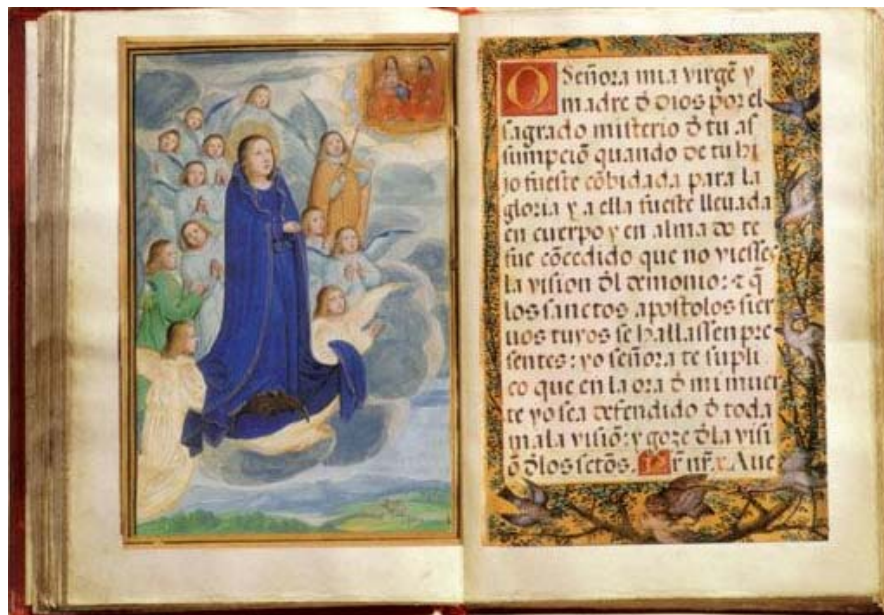 O Señora mia virgē y
madre d̄ dios por el
sagrado misterio d̄ tu as
sumpciō quando de tu hi
jo fueste cōbidada para la
gloria y a ella fueste lleuada
en cuerpo y en alma do te
fue cōcedido que no viesses
la vision d̄l demonio: ⁊ q̄
los sanctos apostolos sier
uos tuyos se hallassen pre
sentes: yo señora te supli
co que en la ora d̄ mi muer
te yo sea defendido d̄ toda
mala visiō: y goze d̄la visi
ō d̄los sctōs. Pr̄ nr̄. x. Aue